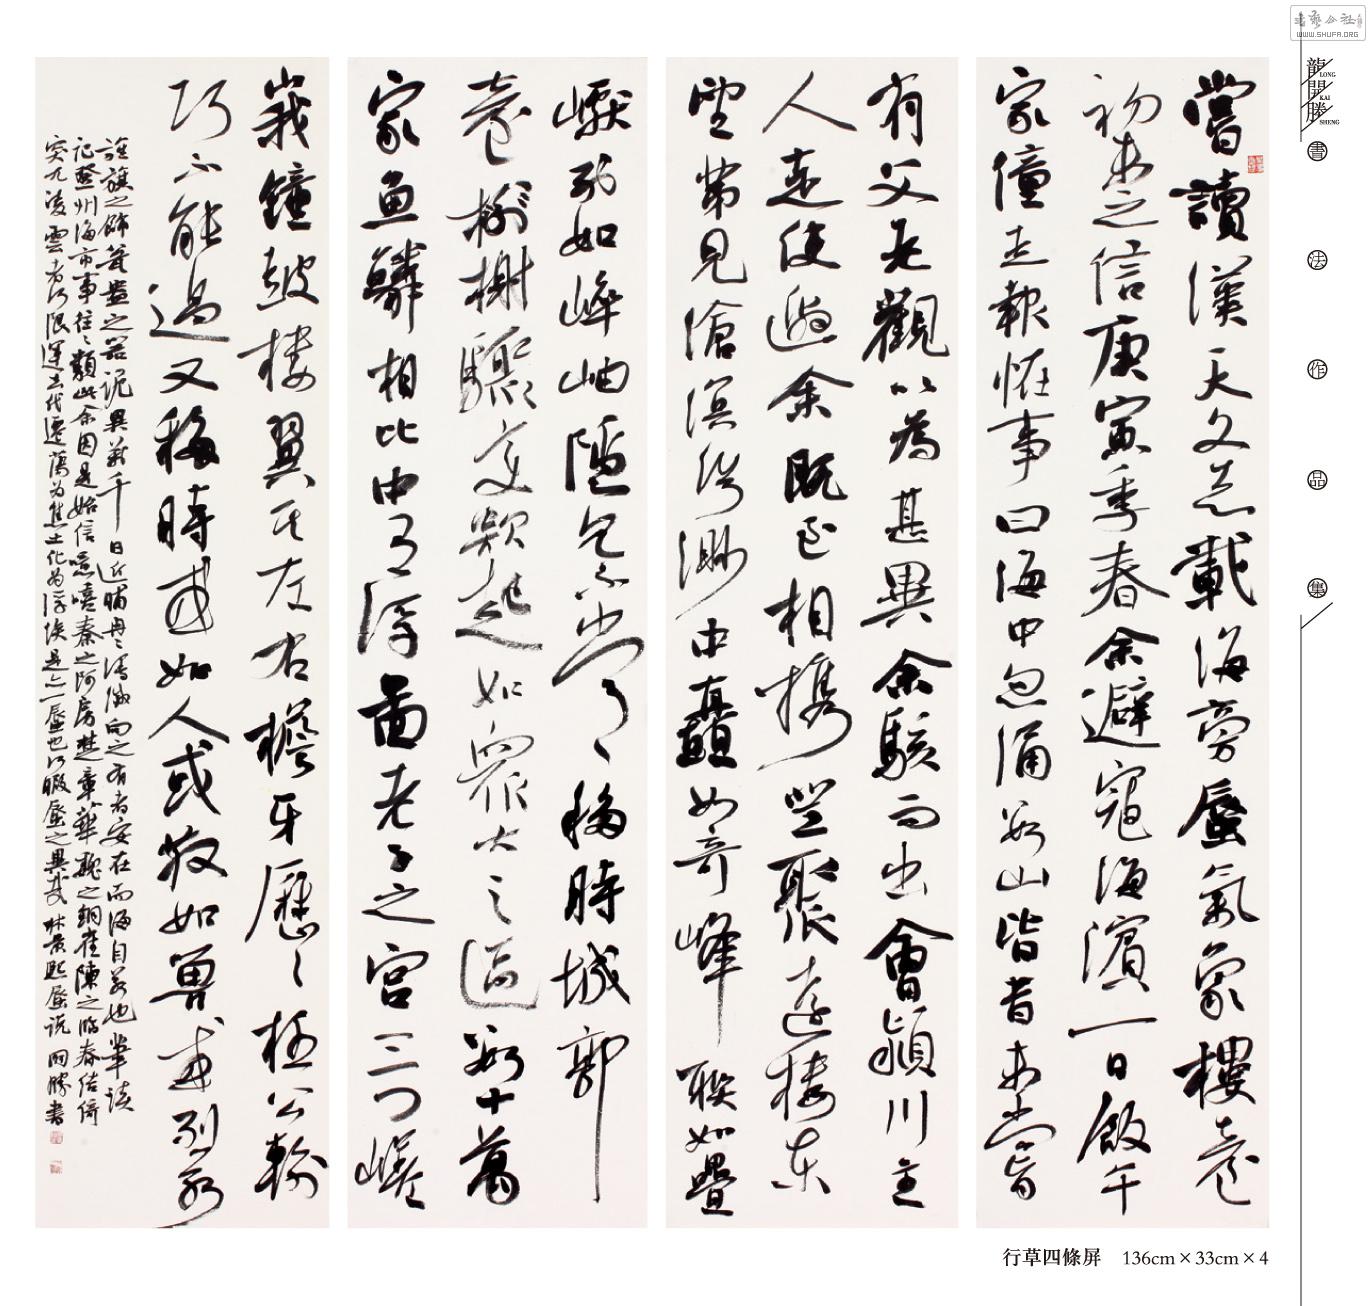 嘗讀漢天文志載海旁蜃氣象樓臺
初未之信庚寅季春余避寇海濱一日飯午
家僮走報怪事曰海中忽涌數山皆昔未嘗
有父老觀以為甚異余駭而出會潁川主
人走使邀余既至相攜登聚遠樓東
望第見滄溟浩渺中矗如奇峰聯如疊
巘列如崪岫隱見不常移時城郭
臺榭驟變欻起如眾大之區數十萬
家魚鱗相比中有浮圖老子之宮三門嵯
峨鐘鼓樓翼其左右檐牙歷歷極公輸
巧不能過又移時或如人或散如獸或列若
旌旗之飾甕盎之器詭異萬千日近晡冉冉漫滅向之有者安在而海自若也筆談
記登州海市事往往類此余因是始信噫嘻秦之阿房楚章華魏之銅雀陳之臨春結綺
突兀凌雲者何限運去代遷蕩為焦土化為浮埃是亦一蜃也何暇蜃之異哉 林景熙蜃說 開勝書
行草四條屏 136cm×33cm×4
龍開勝
LONG
KAI
SHENG
書法作品集
WWW.SHUFA.ORG